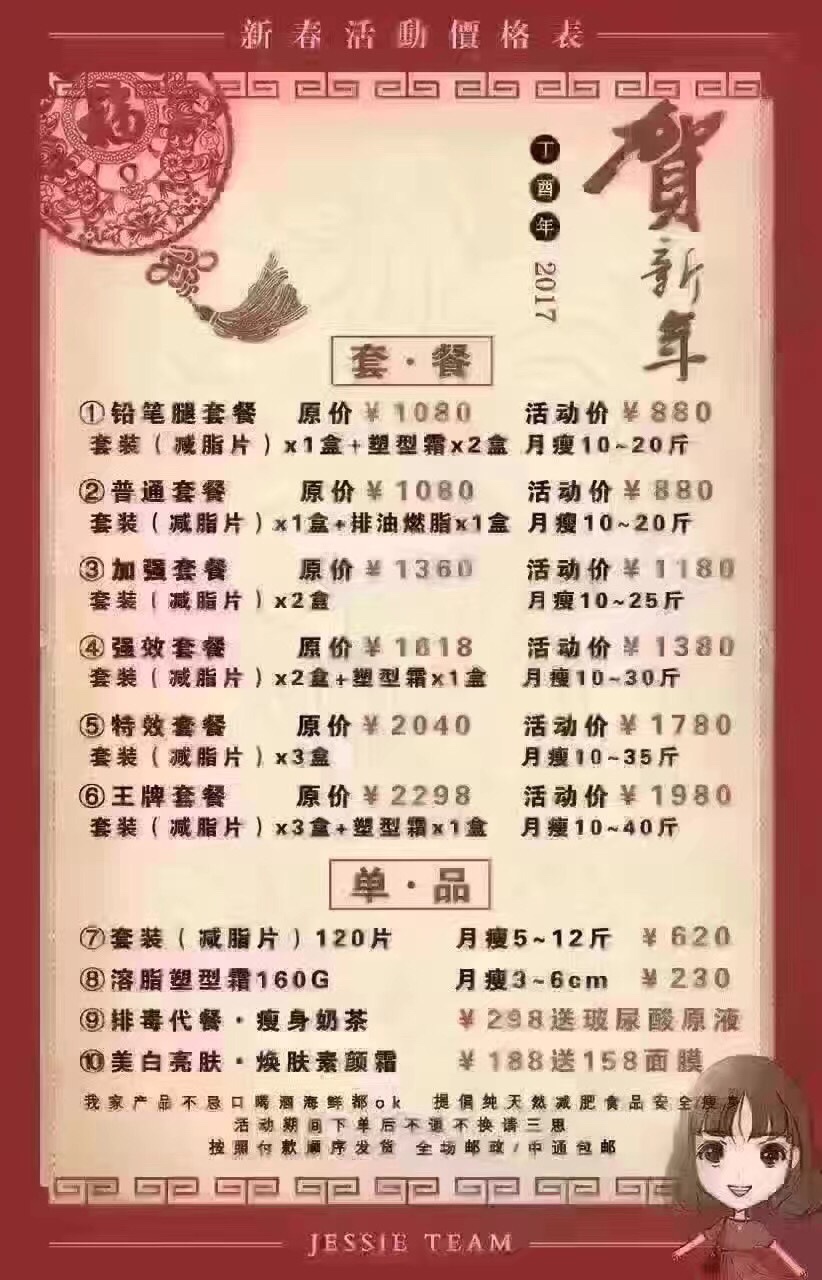 新春活動價格表
福
賀新年
丁酉年 2017
套·餐
①铅笔腿套餐 原价￥1080 活动价￥880
套装(减脂片)x1盒+塑型霜x2盒 月瘦10~20斤
②普通套餐 原价￥1080 活动价￥880
套装(减脂片)x1盒+排油燃脂x1盒 月瘦10~20斤
③加强套餐 原价￥1360 活动价￥1180
套装(减脂片)x2盒 月瘦10~25斤
④强效套餐 原价￥1618 活动价￥1380
套装(减脂片)x2盒+塑型霜x1盒 月瘦10~30斤
⑤特效套餐 原价￥2040 活动价￥1780
套装(减脂片)x3盒 月瘦10~35斤
⑥王牌套餐 原价￥2298 活动价￥1980
套装(减脂片)x3盒+塑型霜x1盒 月瘦10~40斤
单·品
⑦套装(减脂片)120片 月瘦5~12斤 ￥620
⑧溶脂塑型霜160G 月瘦3~6cm ￥230
⑨排毒代餐·瘦身奶茶 ￥298送玻尿酸原液
⑩美白亮肤·焕肤素颜霜 ￥188送158面膜
我家产品不忌口喝酒海鲜都ok 提倡纯天然减肥食品安全瘦身
活动期间下单后不退不换请三思
按照付款顺序发货 全场邮政/中通包邮
JESSIE TEAM